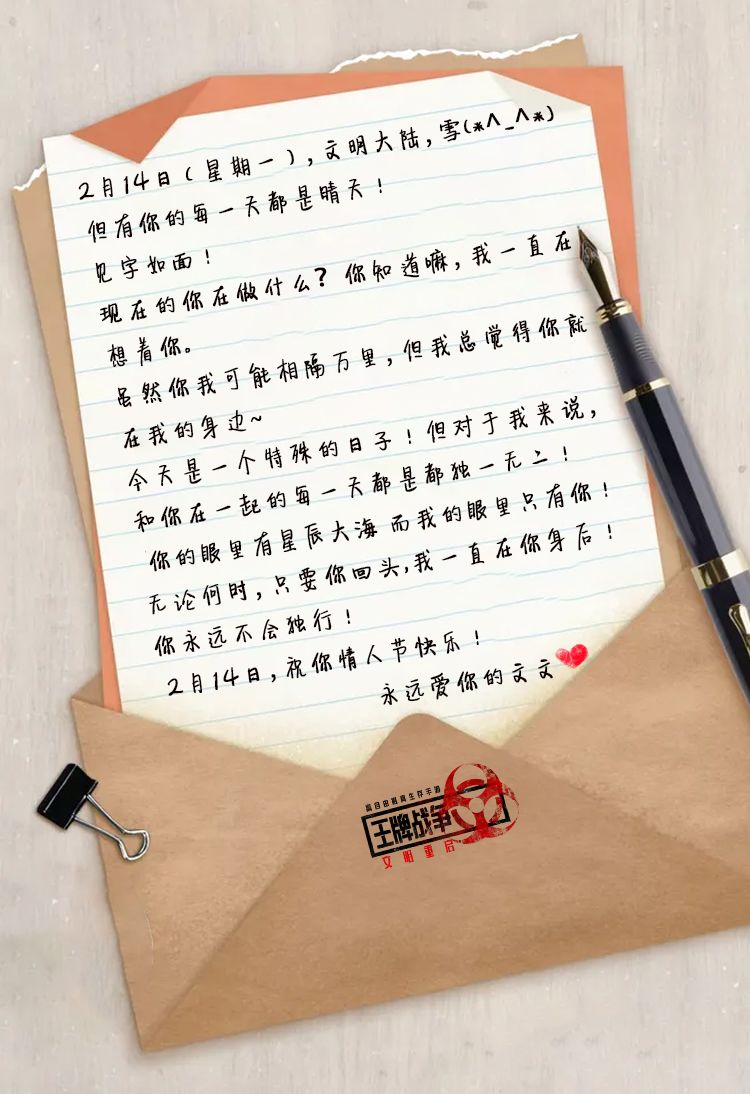 2月14日(星期一),文明大陆,雪(*^_^*)
但有你的每一天都是晴天!
见字如面!
现在的你在做什么?你知道嘛,我一直在
想着你。
虽然你我可能相隔万里,但我总觉得你就
在我的身边~
今天是一个特殊的日子!但对于我来说,
和你在一起的每一天都是都独一无二!
你的眼里有星辰大海而我的眼里只有你!
无论何时,只要你回头,我一直在你身后!
你永远不会独行!
2月14日,祝你情人节快乐!
永远爱你的文文
高自由废土生存手游
王牌战争
文明重启